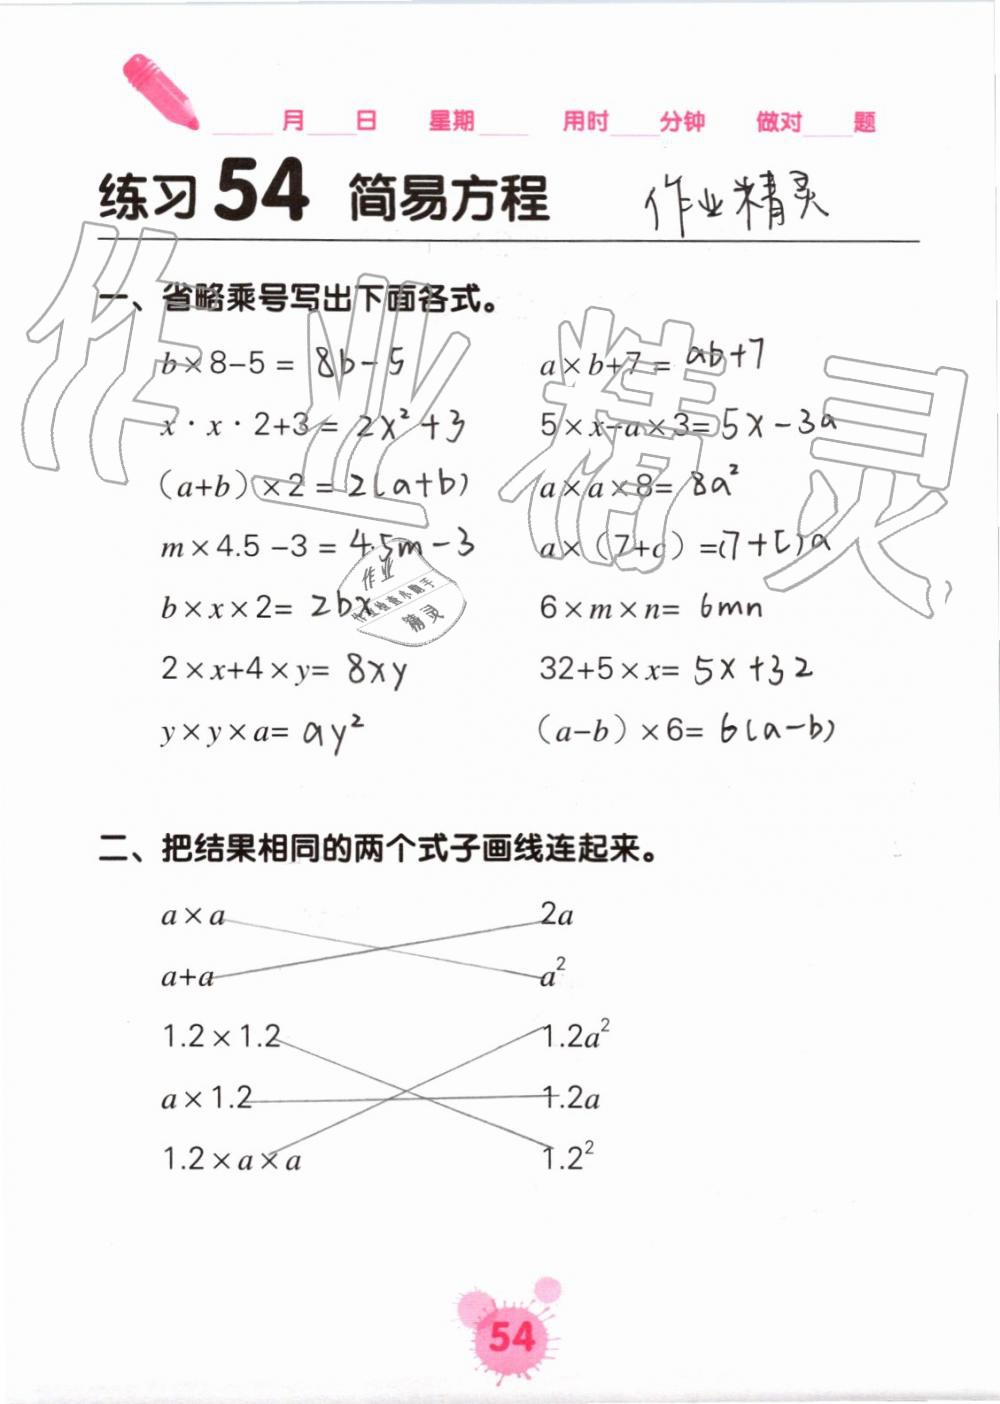 ____月____日 星期____ 用时____分钟 做对____题
练习54 简易方程 作业精灵
一、省略乘号写出下面各式。
b×8-5= 8b-5 a×b+7= ab+7
x·x·2+3= 2x²+3 5×x-a×3= 5x-3a
(a+b)×2= 2(a+b) a×a×8= 8a²
m×4.5-3= 4.5m-3 a×(7+c)=(7+c)a
b×x×2= 2bx 6×m×n= 6mn
2×x+4×y= 8xy 32+5×x= 5x+32
y×y×a= ay² (a-b)×6= 6(a-b)
作业精灵
作业
作业检查小助手
精灵
二、把结果相同的两个式子画线连起来。
a×a 2a
a+a a²
1.2×1.2 1.2a²
a×1.2 1.2a
1.2×a×a 1.2²
54